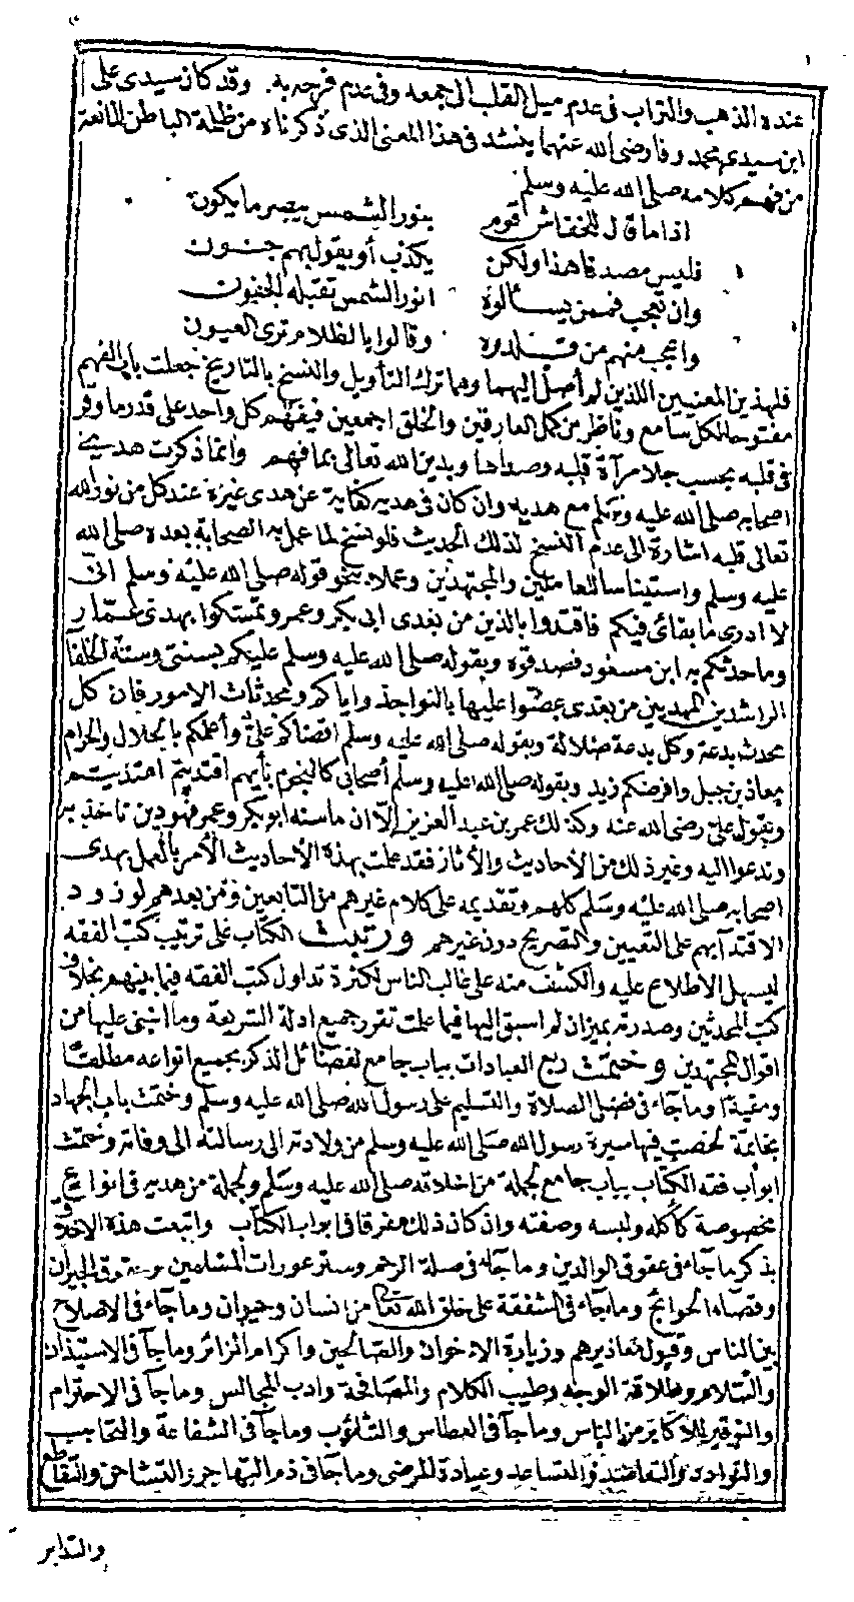 عنده الذهب والتراب في عدم ميل القلب الى جمعه وفي عدم فرحه به. وقد كان سيدى على
ابن سيدى محمد وفا رضى الله عنهما ينشد في هذا المعنى الذى ذكرناه من ظلمة الباطن المانعة
من فهم كلامه صلى الله عليه وسلم
اذا ما قال للخفاش قوم بنور الشمس يبصر ما يكون
فليس مصدقا هذا ولكن يكذب أو يقول بهم جنون
وان تعجب فممن يسألوه انور الشمس تقبله الجفون
واعجب منهم من قلدوه وقالوا بالظلام ترى العيون
فلهذين المعنيين اللذين لم أصل اليهما وهما ترك التأويل والنسخ بالتاريخ جعلت باب الفهم
مفتوحا لكل سامع وناظر من كمل العارفين والخلق اجمعين فيفهم كل واحد على قدر ما وقر
في قلبه بحسب جلا مرآة قلبه وصداها ويدين الله تعالى بما فهم وانما ذكرت هدى
اصحابه صلى الله عليه وسلم مع هديه وان كان في هديه كفاية عن هدى غيره عند كل من نور الله
تعالى قلبه اشارة الى عدم النسخ لذلك الحديث فلو نسخ لما عمل به الصحابة بعده صلى الله
عليه وسلم واستيناسا للعاملين والمجتهدين وعملا بنحو قوله صلى الله عليه وسلم انى
لا ادرى ما بقائى فيكم فاقتدوا بالذين من بعدى ابى بكر وعمر وتمسكوا بهدى عمار
وما حدثكم به ابن مسعود فصدقوه وبقوله صلى الله عليه وسلم عليكم بسنتى وسنة الخلفا
الراشدين المهديين من بعدى عضوا عليها بالنواجذ واياكم ومحدثات الامور فان كل
محدث بدعة وكل بدعة ضلالة وبقوله صلى الله عليه وسلم اقضاكم على وأعلمكم بالحلال والحرام
معاذ بن جبل وافرضكم زيد وبقوله صلى الله عليه وسلم أصحابى كالنجوم بأيهم اقتديتم اهتديتم
وبقول على رضى الله عنه وكذلك عمر بن عبد العزيز الا ان ما سنه ابو بكر وعمر فهو دين نأخذ به
وندعوا اليه وغير ذلك من الأحاديث والآثار فقد عملت بهذه الأحاديث الأمر بالعمل بهدى
اصحابه صلى الله عليه وسلم كلهم وتقديمه على كلام غيرهم من التابعين ومن بعدهم لورود
الاقتدآ بهم على التعيين والتصريح دون غيرهم ورتبت الكتاب على ترتيب كتب الفقه
ليسهل الاطلاع عليه والكشف منه على غالب الناس لكثرة تداول كتب الفقه فيما بينهم بخلاف
كتب المحدثين وصدرته بميزان لم اسبق اليها فيما علمت تقرر جميع ادلة الشريعة وما انبنى عليها من
اقوال المجتهدين وختمت ربع العبادات بباب جامع لفضائل الذكر بجميع انواعه مطلقا
ومقيدا وما جاء في فضل الصلاة والتسليم على رسول الله صلى الله عليه وسلم وختمت باب الجهاد
بخاتمة لخصت فيها سيرة رسول الله صلى الله عليه وسلم من ولادته الى رسالته الى وفاته وختمت
ابواب فقه الكتاب بباب جامع لجملة من اخلاقه صلى الله عليه وسلم ولجملة من هديه في انواع
مخصوصة كأكله ولبسه وصفته وان كان ذلك مفرقا في ابواب الكتاب واتبعت هذه الاخلاق
بذكر ما جآء في عقوق الوالدين وما جآء في صلة الرحم وستر عورات المسلمين وحقوق الجيران
وقضاء الحوائج وما جاء في الشفقة على خلق الله تعالى من انسان وحيوان وما جاء في الاصلاح
بين الناس وقبول معاذيرهم وزيارة الاخوان والصالحين واكرام الزائر وما جآ في الاستيذان
والسلام وطلاقة الوجه وطيب الكلام والمصافحة وادب المجالس وما جآ في الاحترام
والتوقير للاكابر من الناس وما جآ في العطاس والتثاؤب وما جآ في الشفاعة والتحابب
والتوادد والتعاضد والتساعد وعيادة المرضى وما جآ في ذم التهاجر والتشاحن والتقاطع
والتدابر